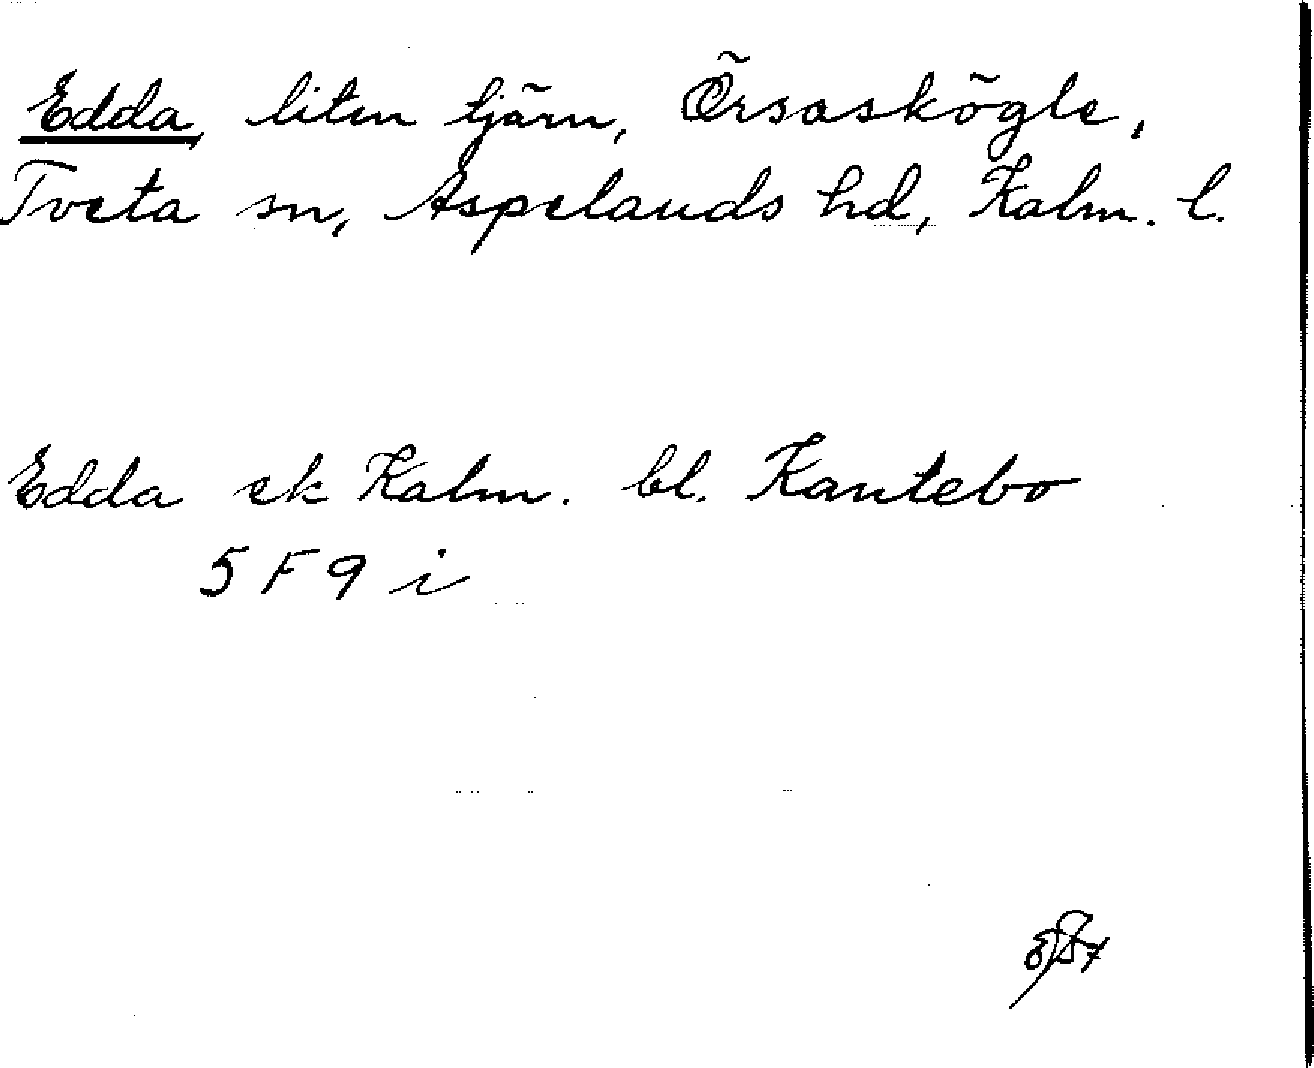 Edda, liten tjärn, Örsaskögle,
Tveta sn, Aspelands hd, Kalm. l.
Edda ek Kalm. bl. Kantebo
5 F 9 i